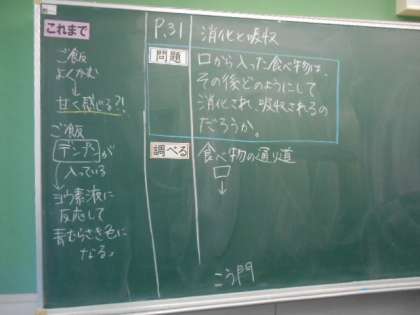 これまで
ご飯
よくかむ
↓
甘く感じる?!
ご飯
デンプンが
入っている
ヨウ素液に
反応して
青むらさき色に
なる。
P.31 消化と吸収
問題
口から入った食べ物は、
その後どのようにして
消化され、吸収されるの
だろうか。
調べる
食べ物の通り道
口
↓
こう門